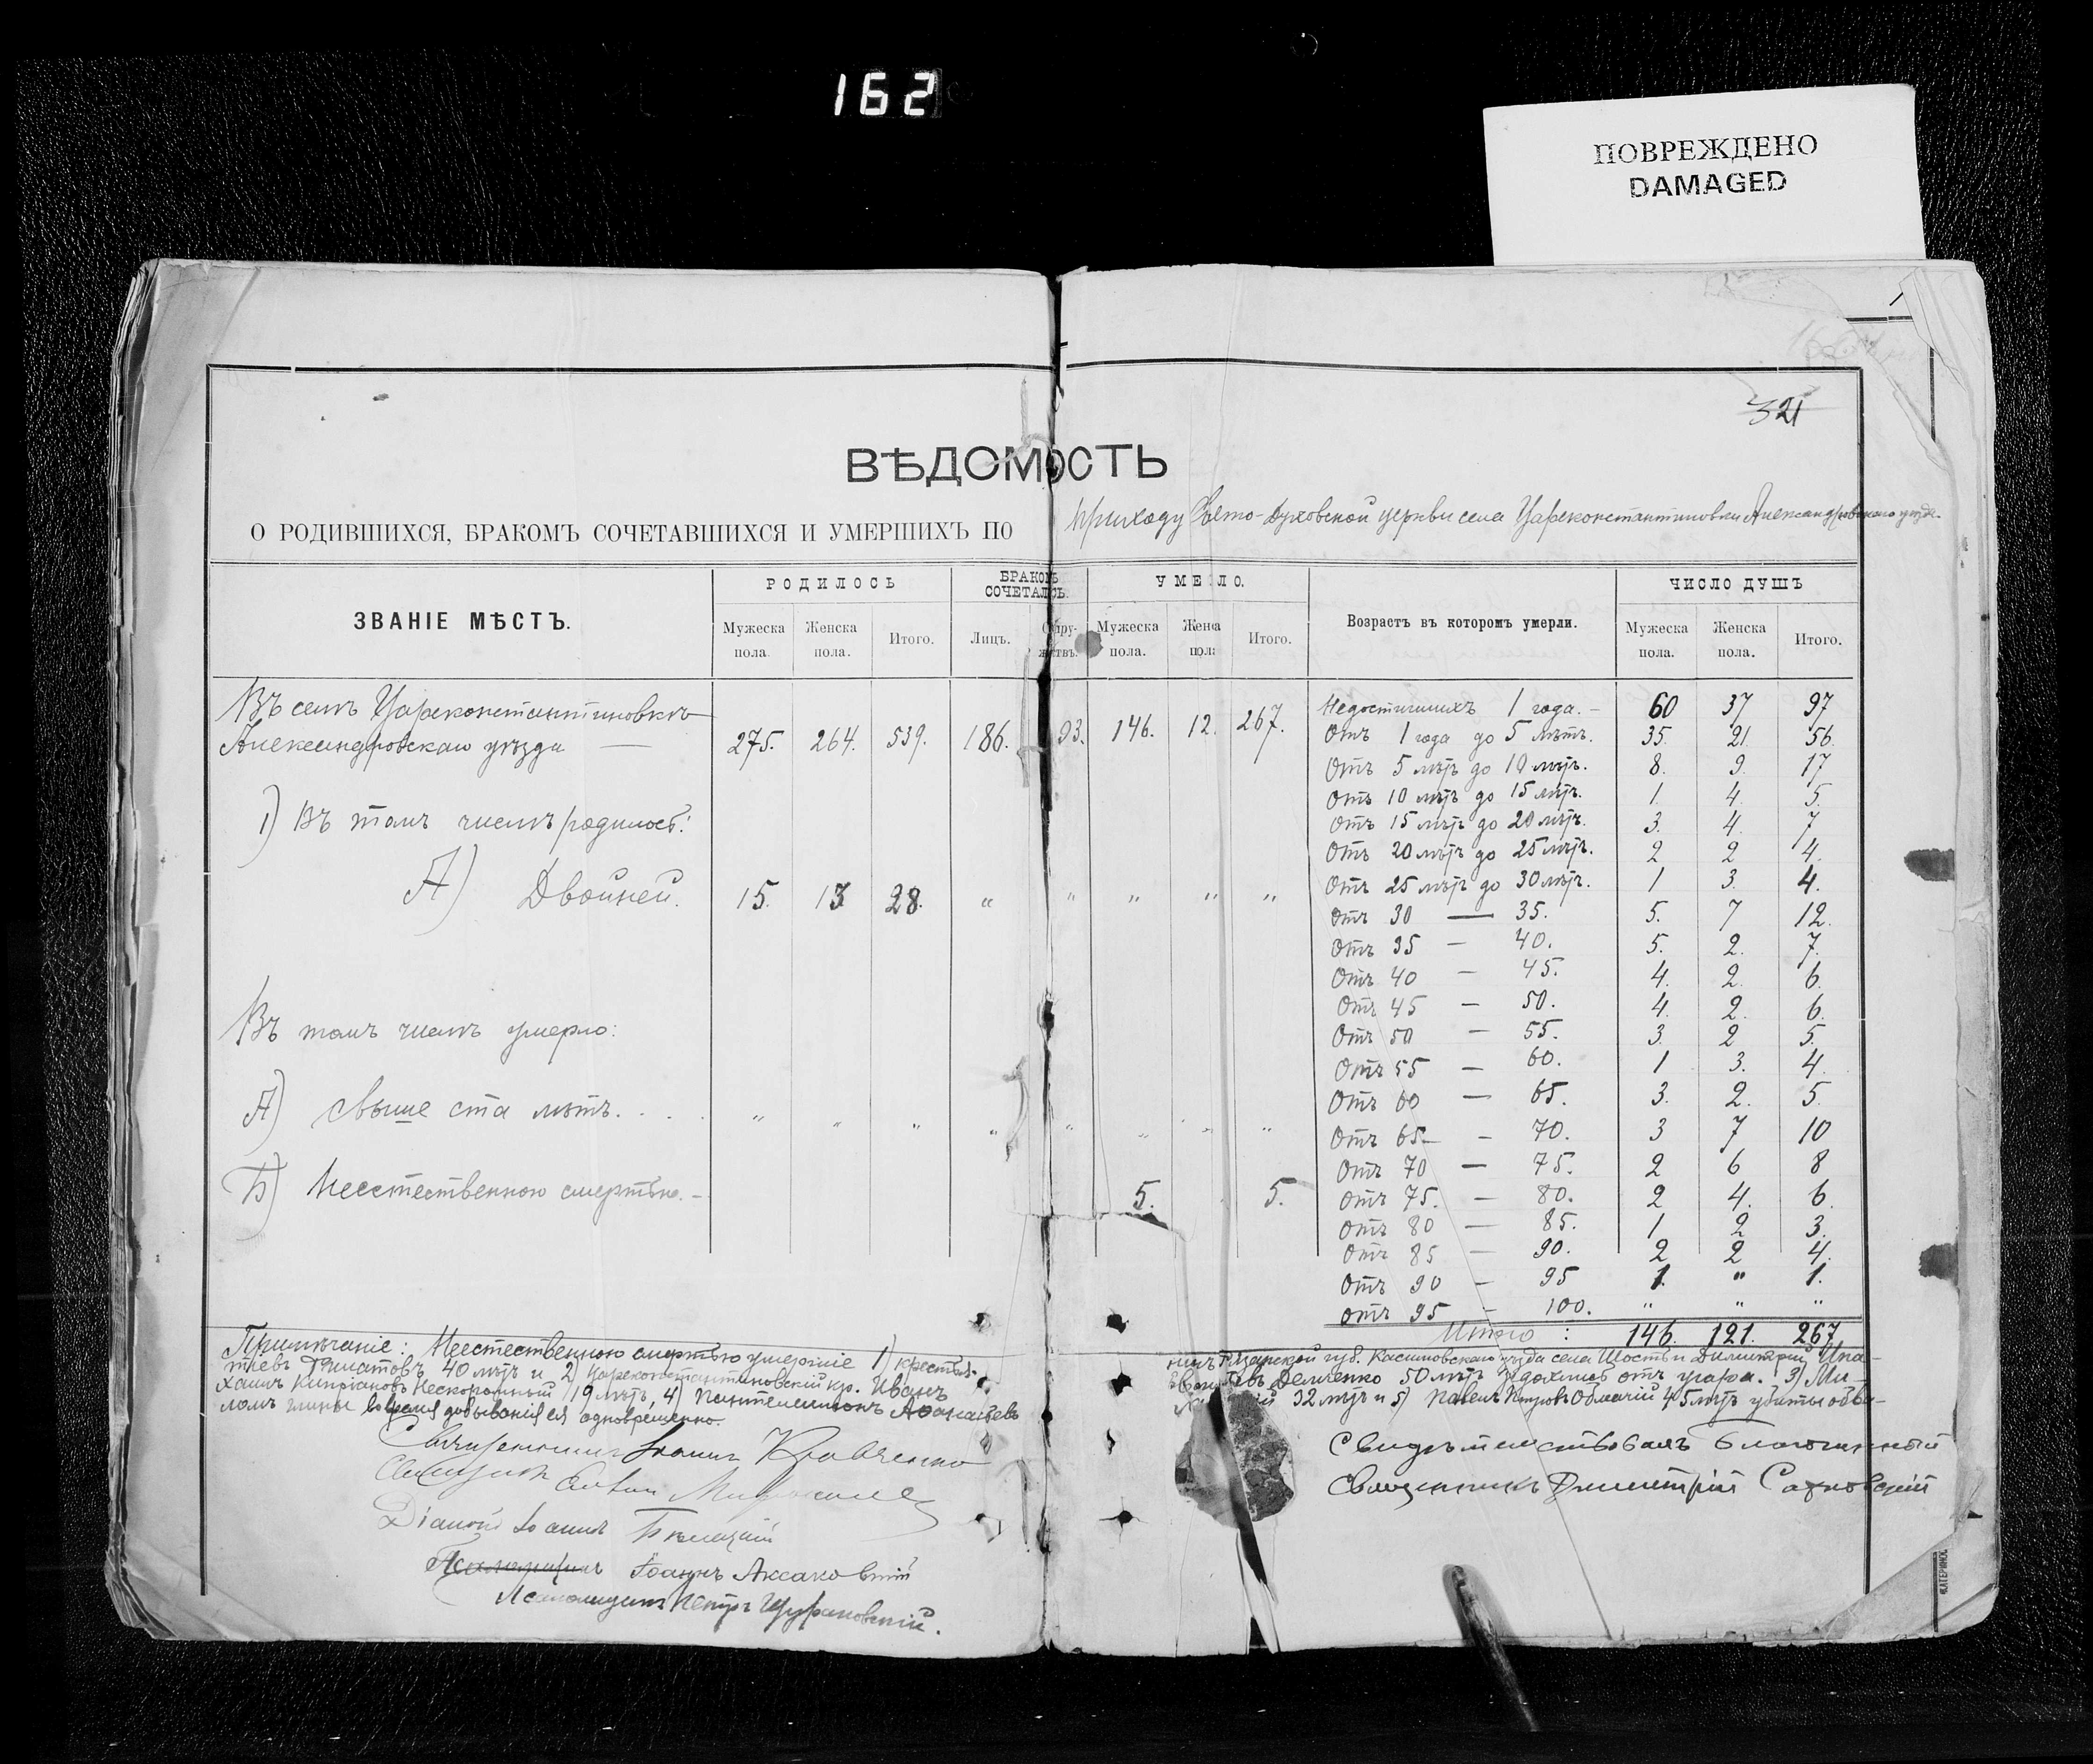 162
ПОВРЕЖДЕНО
DAMAGED
321
ВѢДОМОСТЬ
О РОДИВШИХСЯ, БРАКОМЪ СОЧЕТАВШИХСЯ И УМЕРШИХЪ ПО приходу Свято-Духовской церкви села Цареконстантиновки Александровскаго уѣзда.
ЗВАНІЕ МѢСТЪ. РОДИЛОСЬ БРАКОМЪ СОЧЕТАЛОСЬ. УМЕРЛО. Возрастъ въ которомъ умерли. ЧИСЛО ДУШЪ
Мужеска пола. Женска пола. Итого. Лицъ. Супружествъ. Мужеска пола. Женска пола Итого. Мужеска пола. Женска пола. Итого.
Въ селѣ Цареконстантиновкѣ
Александровскаго уѣзда — 275. 264. 539. 186. 93. 146. 12 267.
Недостигшихъ 1 года. – 60 37 97
Отъ 1 года до 5 лѣтъ. 35. 21 56.
Отъ 5 лѣтъ до 10 лѣтъ. 8. 9. 17
Отъ 10 лѣтъ до 15 лѣтъ. 1. 4. 5.
1) Въ томъ числѣ родилось:
Отъ 15 лѣтъ до 20 лѣтъ. 3. 4. 7
Отъ 20 лѣтъ до 25 лѣтъ. 2 2 4.
А) Двойней. 15. 13 28. " " " " "
Отъ 25 лѣтъ до 30 лѣтъ. 1 3. 4.
Отъ 30 — 35. 5. 7 12.
Отъ 35 – 40. 5. 2. 7.
Отъ 40 – 45. 4. 2. 6.
Отъ 45 – 50. 4. 2. 6.
Въ томъ числѣ умерло:
Отъ 50 – 55. 3. 2 5.
Отъ 55 – 60. 1 3. 4.
А) Свыше ста лѣтъ. . . . " " " " " " " "
Отъ 60 – 65. 3. 2. 5.
Отъ 65 – 70. 3 7 10
Отъ 70 – 75. 2 6 8
Б) Неестественною смертью. – 5. 5.
Отъ 75. – 80. 2 4. 6.
Отъ 80 – 85. 1 2 3.
Отъ 85 – 90. 2 2 4.
Отъ 90 – 95 1. " 1.
Отъ 95 – 100. " " "
Итого : 146. 121. 267
Примѣчаніе: Неестественною смертью умершіе 1) крестья-
нинъ Рязанской губ. Касимовскаго уѣзда села Шость и Димитрій Ипа-
тіевъ 40 лѣтъ и 2) Цареконстантиновскій кр. Иванъ
Демченко 50 лѣтъ отъ угара. 3) Ми-
хаилъ Кипріановъ Нескоромный 19 лѣтъ, 4) Пантелеимонъ Аѳанасьевъ
32 лѣтъ и 5) Павелъ Петровъ 45 лѣтъ убиты обва-
ломъ глины во время добыванія ея одновременно.
Священникъ Іоаннъ Кравченко
Священникъ
Діаконъ Іоаннъ
Псаломщикъ Іоаннъ Аксаковскій
Псаломщикъ Петръ
Свидѣтельствовалъ Благочинный
Священникъ Димитрій